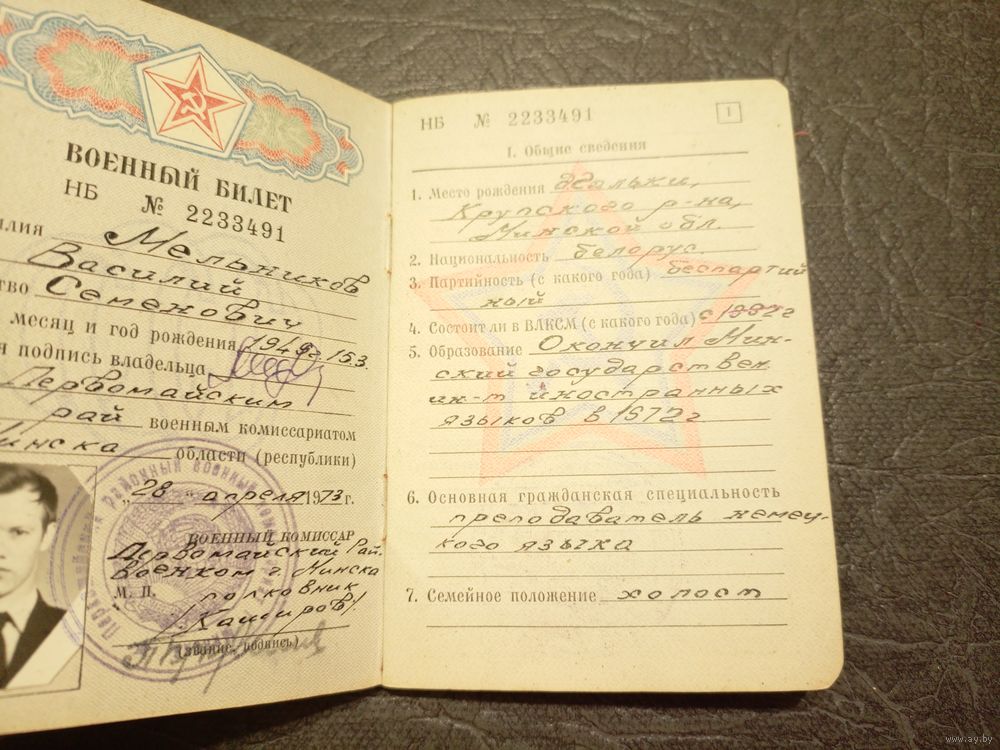 ВОЕННЫЙ БИЛЕТ
НБ № 2233491
илия Мельников
Василий
тво Семенович
месяц и год рождения 1949г. 153.
я подпись владельца
Первомайским
рай военным комиссариатом
инска области (республики)
„28" апреля 1973 г.
ВОЕННЫЙ КОМИССАР
Первомайский Рай-
военком г. Минска
М. П. полковник
/Каширов/
(звание, подпись)
НБ № 2233491
1
I. Общие сведения
1. Место рождения
Крупского р-на,
Минской обл.
2. Национальность белорус
3. Партийность (с какого года) беспартий
ный
4. Состоит ли в ВЛКСМ (с какого года) с г
5. Образование Окончил Мин-
ский государствен.
ин-т иностранных
языков в 1972 г
6. Основная гражданская специальность
преподаватель немец-
кого языка
7. Семейное положение холост
www.ay.by